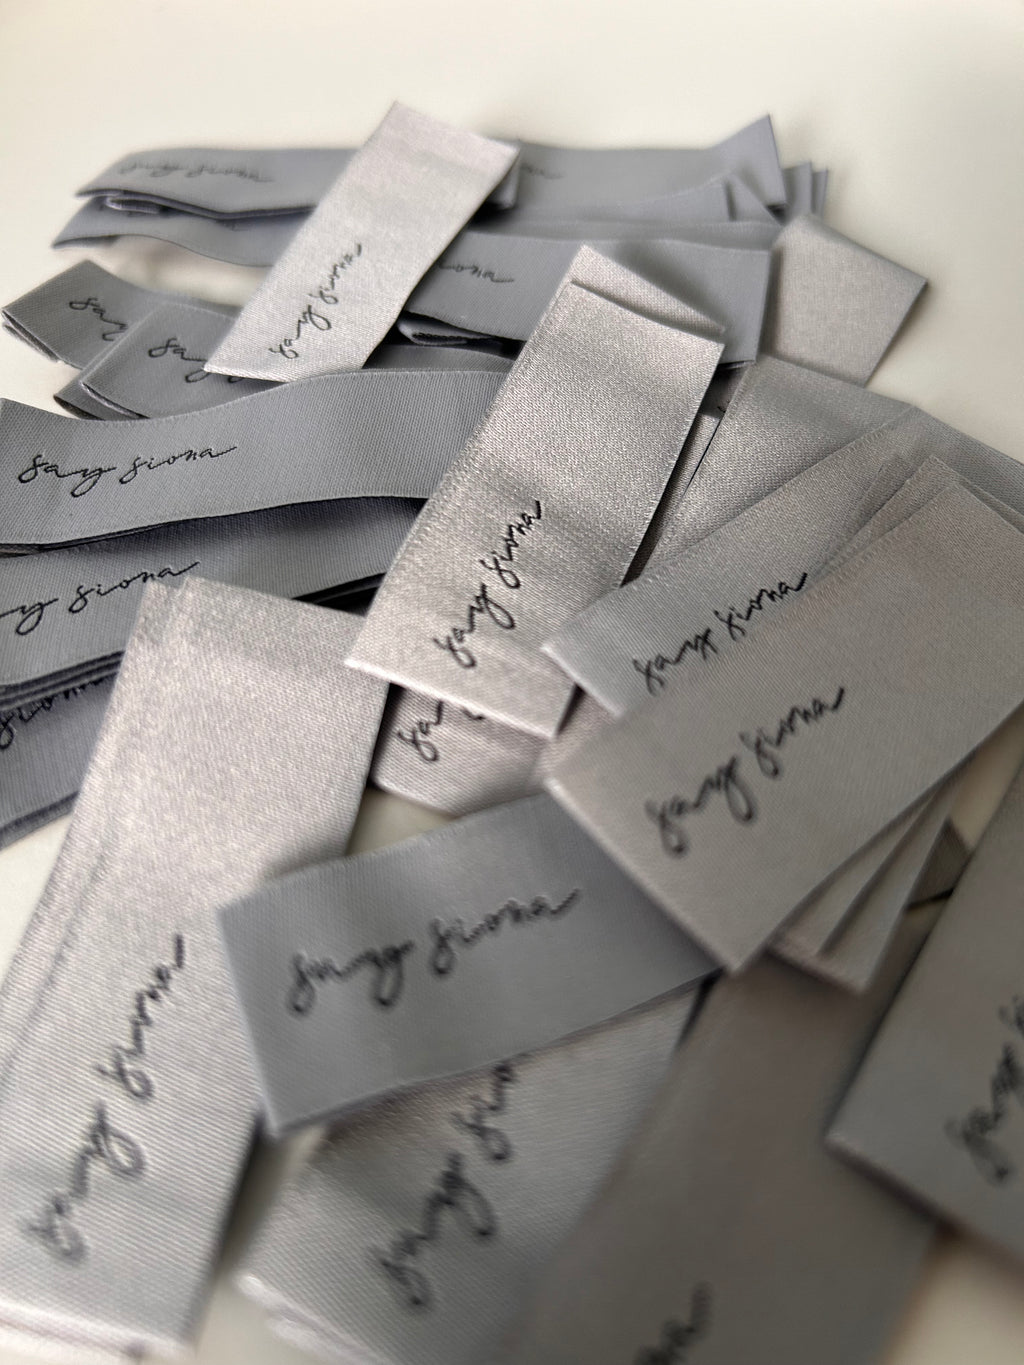 say siona
say siona
say siona
say
say
say siona
ona
say siona
y siona
siona
say siona
say siona
sa
say siona
say siona
say siona